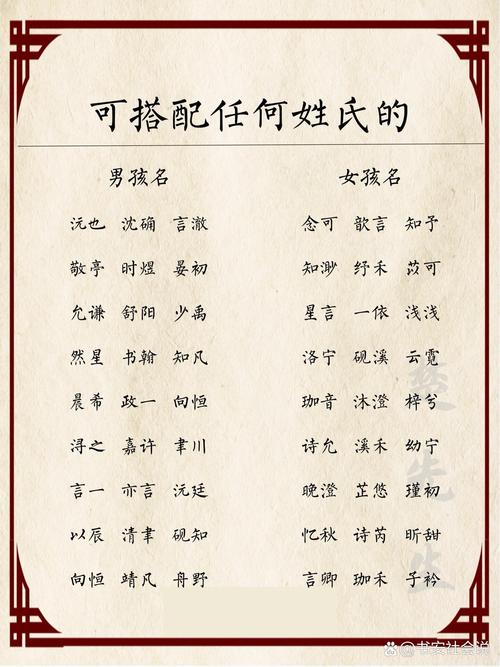 可搭配任何姓氏的
男孩名
沅也 沈确 言澈
敬亭 时煜 晏初
允谦 舒阳 少禹
然星 书翰 知凡
晨希 政一 向恒
浔之 嘉许 聿川
言一 亦言 沅廷
以辰 清聿 砚知
向恒 靖凡 舟野
女孩名
念可 歆言 知予
知渺 纾禾 苡可
星言 一依 浅浅
洛宁 砚溪 云霓
珈音 沐澄 梓兮
诗允 溪禾 幼宁
晚澄 芷悠 瑾初
忆秋 诗芮 昕甜
言卿 珈禾 子衿
楚先生